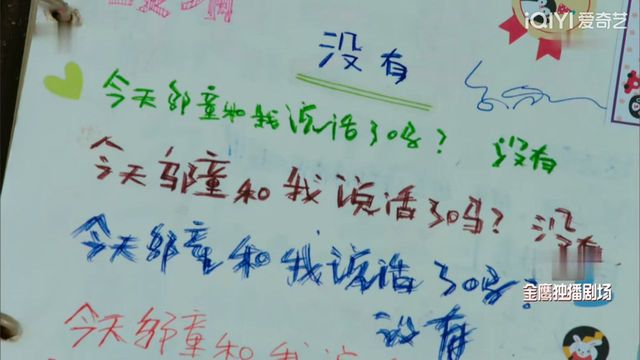 iQIYI 爱奇艺
没有
今天邬童和我说话了吗？ 没有
今天邬童和我说话了吗？ 没有
今天邬童和我说话了吗？
金鹰独播剧场
没有
今天邬童和我说